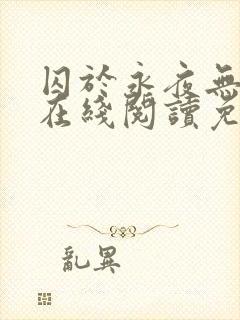 囚於永夜無
在綫閱讀免
亂異